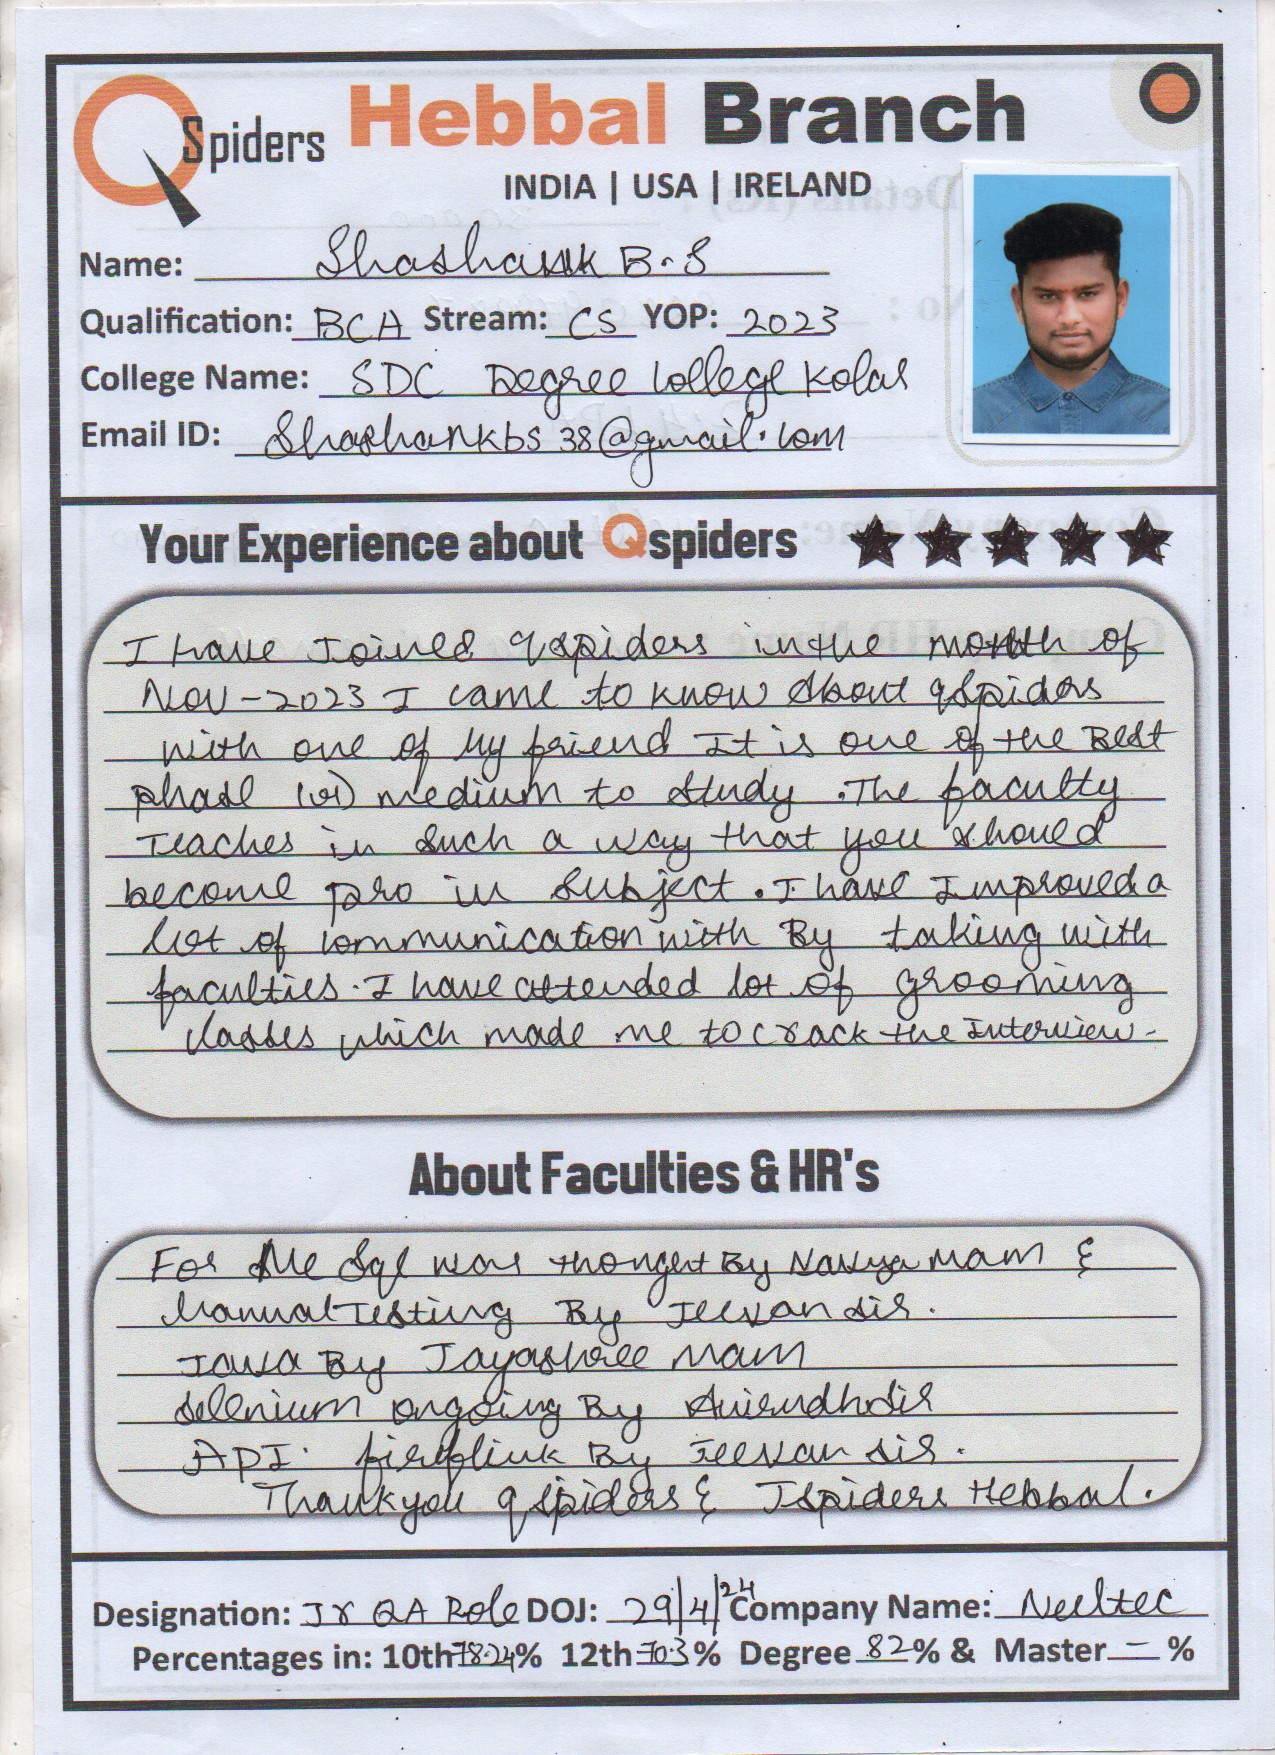 QSpiders Hebbal Branch
INDIA | USA | IRELAND
Name: Shashank B.S
Qualification: BCA Stream: CS YOP: 2023
College Name: SDC Degree College Kolar
Email ID: Shashankbs38@gmail.com
Your Experience about Qspiders
I have Joined qspiders in the month of
Nov-2023 I came to know about qspiders
with one of My friend It is one of the Best
phase (or) medium to study. The faculty
Teaches in such a way that you should
become pro in subject. I have Improved a
lot of communication with By taking with
faculties. I have attended lot of grooming
classes which made me to crack the Interview-
About Faculties & HR's
For Me Sql was thonget By Navya Mam &
Manual Testing By Jeevan sir.
Java By Jayashree Mam
Selenium ongoing By Anirudh sir
API. fireflink By Jeevan sir.
Thankyou qspiders & Jspiders Hebbal.
Designation: Jr QA Role DOJ: 29/4/24 Company Name:
Percentages in: 10th 78.24% 12th 70.3% Degree 82% & Master – %